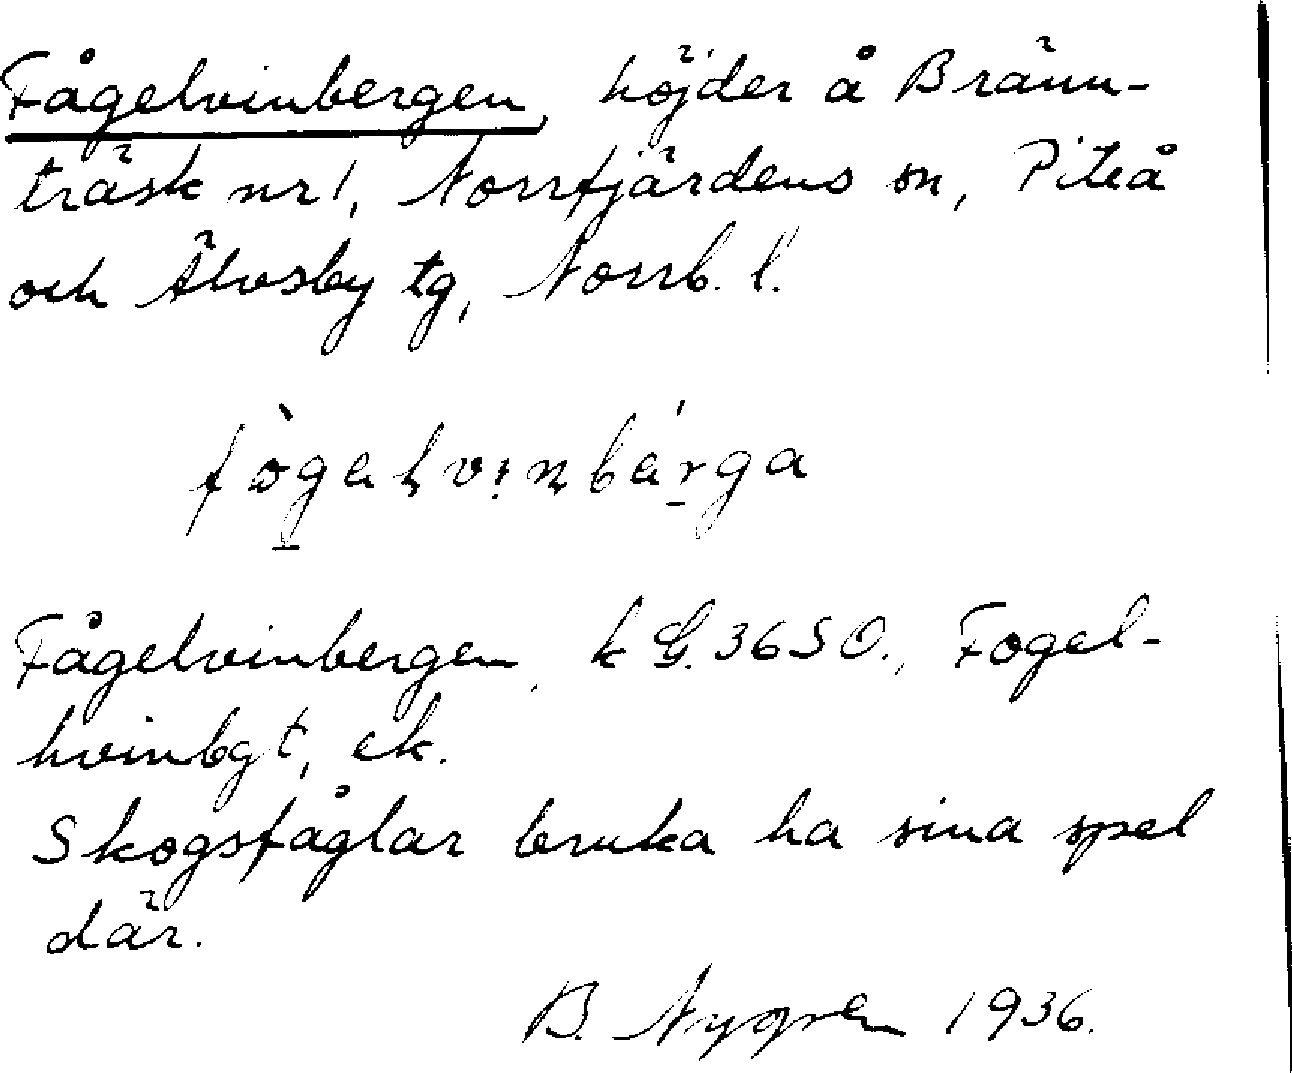 Fågelvinbergen, höjder å Bränn-
träsk nr 1, Norrfjärdens sn, Piteå
och Älvsby tg, Norrb. l.
fògalvinbárga
Fågelvinbergen, k G. 36 S O., Fogel-
hvinbgt, ek.
Skogsfåglar bruka ha sina spel
där.
B. Nygren 1936.